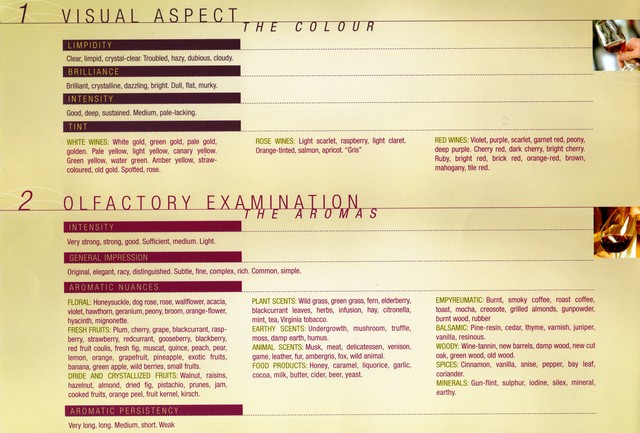 1 VISUAL ASPECT
THE COLOUR
LIMPIDITY
Clear, limpid, crystal-clear. Troubled, hazy, dubious, cloudy.
BRILLIANCE
Brilliant, crystalline, dazzling, bright. Dull, flat, murky.
INTENSITY
Good, deep, sustained. Medium, pale-lacking.
TINT
WHITE WINES: White gold, green gold, pale gold,
golden. Pale yellow, light yellow, canary yellow.
Green yellow, water green. Amber yellow, straw-
coloured, old gold. Spotted, rose.
ROSE WINES: Light scarlet, raspberry, light claret.
Orange-tinted, salmon, apricot. "Gris"
RED WINES: Violet, purple, scarlet, garnet red, peony,
deep purple. Cherry red, dark cherry, bright cherry.
Ruby, bright red, brick red, orange-red, brown,
mahogany, tile red.
2 OLFACTORY EXAMINATION
THE AROMAS
INTENSITY
Very strong, strong, good. Sufficient, medium. Light.
GENERAL IMPRESSION
Original, elegant, racy, distinguished. Subtle, fine, complex, rich. Common, simple.
AROMATIC NUANCES
FLORAL: Honeysuckle, dog rose, rose, wallflower, acacia,
violet, hawthorn, geranium, peony, broom, orange-flower,
hyacinth, mignonette.
FRESH FRUITS: Plum, cherry, grape, blackcurrant, rasp-
berry, strawberry, redcurrant, gooseberry, blackberry,
red fruit coulis, fresh fig, muscat, quince, peach, pear,
lemon, orange, grapefruit, pineapple, exotic fruits,
banana, green apple, wild berries, small fruits.
DRIDE AND CRYSTALLIZED FRUITS: Walnut, raisins,
hazelnut, almond, dried fig, pistachio, prunes, jam,
cooked fruits, orange peel, fruit kernel, kirsch.
PLANT SCENTS: Wild grass, green grass, fern, elderberry,
blackcurrant leaves, herbs, infusion, hay, citronella,
mint, tea, Virginia tobacco.
EARTHY SCENTS: Undergrowth, mushroom, truffle,
moss, damp earth, humus.
ANIMAL SCENTS: Musk, meat, delicatessen, venison,
game, leather, fur, ambergris, fox, wild animal.
FOOD PRODUCTS: Honey, caramel, liquorice, garlic,
cocoa, milk, butter, cider, beer, yeast.
EMPYREUMATIC: Burnt, smoky coffee, roast coffee,
toast, mocha, creosote, grilled almonds, gunpowder,
burnt wood, rubber
BALSAMIC: Pine-resin, cedar, thyme, varnish, juniper,
vanilla, resinous.
WOODY: Wine-tannin, new barrels, damp wood, new cut
oak, green wood, old wood.
SPICES: Cinnamon, vanilla, anise, pepper, bay leaf,
coriander.
MINERALS: Gun-flint, sulphur, iodine, silex, mineral,
earthy.
AROMATIC PERSISTENCY
Very long, long. Medium, short. Weak